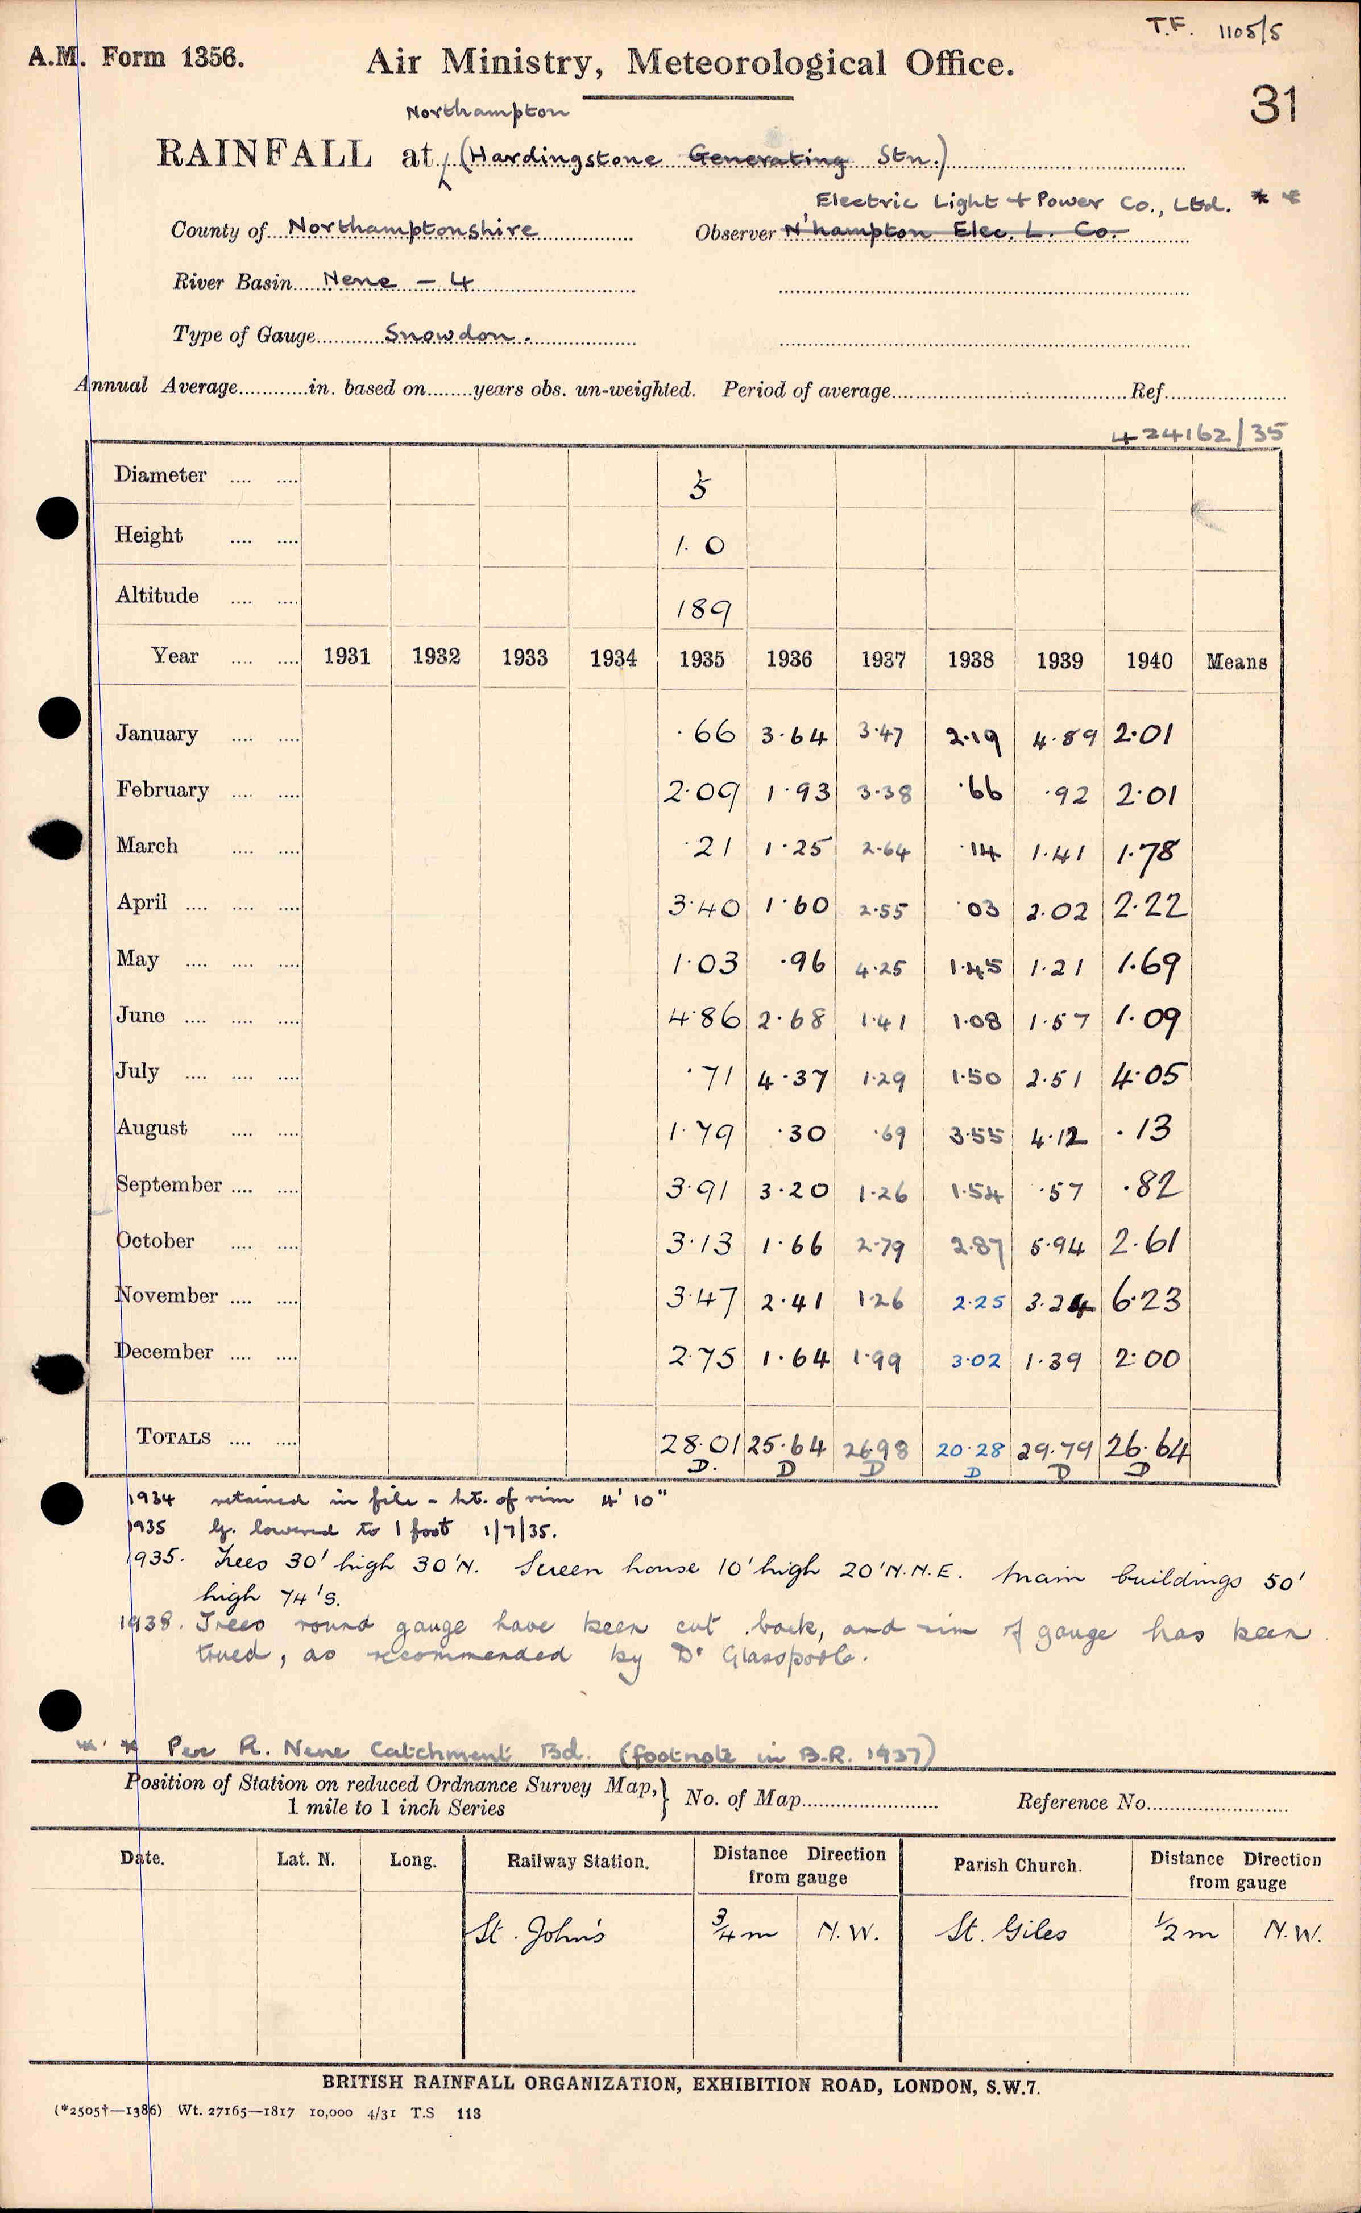 T.F. 1105/5
A.M. Form 1356.
Air Ministry, Meteorological Office.
31
Northampton
RAINFALL at (Hardingstone Generating Stn.)
Electric Light + Power Co., Ltd. * *
County of Northamptonshire Observer N'hampton Elec. L. Co.
River Basin Nene - 4
Type of Gauge Snowdon.
Annual Average in. based on years obs. un-weighted. Period of average Ref
424162/35
Diameter 5
Height 1.0
Altitude 189
Year 1931 1932 1933 1934 1935 1936 1937 1938 1939 1940 Means
January .66 3.64 3.47 2.19 4.89 2.01
February 2.09 1.93 3.38 .66 .92 2.01
March .21 1.25 2.64 .14 1.41 1.78
April 3.40 1.60 2.55 .03 2.02 2.22
May 1.03 .96 4.25 1.45 1.21 1.69
June 4.86 2.68 1.41 1.08 1.57 1.09
July .71 4.37 1.29 1.50 2.51 4.05
August 1.79 .30 .69 3.55 4.12 .13
September 3.91 3.20 1.26 1.54 .57 .82
October 3.13 1.66 2.79 2.87 5.94 2.61
November 3.47 2.41 1.26 2.25 3.24 6.23
December 2.75 1.64 1.99 3.02 1.39 2.00
TOTALS 28.01 25.64 26.98 20.28 29.79 26.64
D. D D D D D
1934 retained in file - ht. of rim 4' 10"
1935 G. lowered to 1 foot 1/7/35.
1935. Trees 30' high 30' N. Screen house 10' high 20' N.N.E. Main buildings 50'
high 74' S.
1938. Trees round gauge have been cut back, and rim of gauge has been
trued, as recommended by Dr Glasspoole.
* * Per R. Nene Catchment Bd. (footnote in B.R. 1937)
Position of Station on reduced Ordnance Survey Map, } No. of Map Reference No
1 mile to 1 inch Series
Date. Lat. N. Long. Railway Station. Distance Direction from gauge Parish Church. Distance Direction from gauge
St. John's 3/4 m N.W. St. Giles 1/2 m N.W.
BRITISH RAINFALL ORGANIZATION, EXHIBITION ROAD, LONDON, S.W.7.
(*2505†—1386) Wt. 27165—1817 10,000 4/31 T.S 113